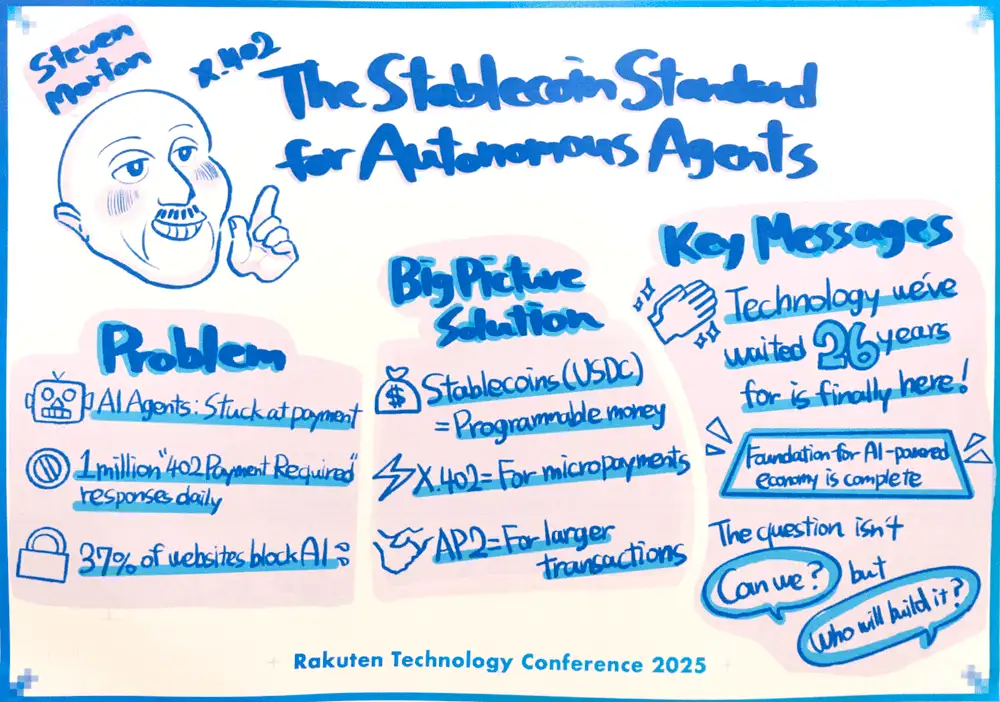 Steven
Morton
X.402
The Stablecoin Standard
for Autonomous Agents
Problem
AI Agents: Stuck at payment
1 million "402 Payment Required"
responses daily
37% of websites block AI
Big Picture
Solution
$
Stablecoins (USDC)
= Programmable money
X.402 = For micropayments
AP2 = For larger
transactions
Key Messages
Technology we've
waited 26 years
for is finally here!
Foundation for AI-powered
economy is complete
The question isn't
Can we? but
Who will build it?
Rakuten Technology Conference 2025